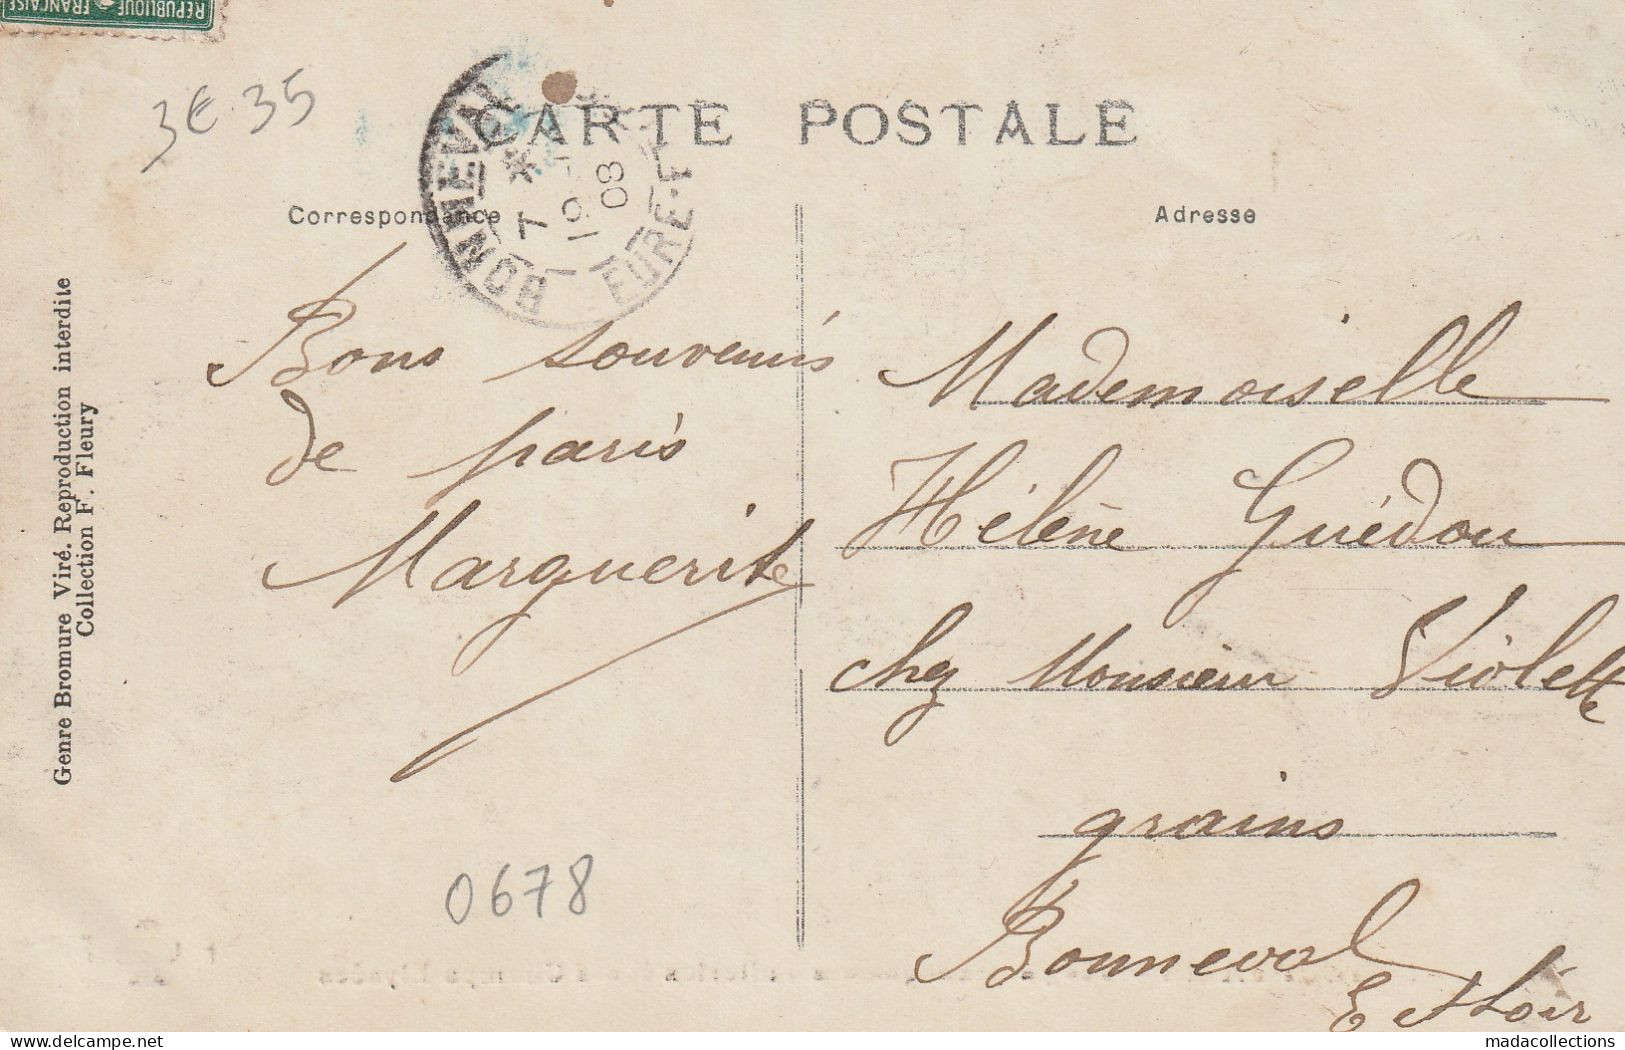 REPUBLIQUE FRANÇAISE
3E 35
CARTE POSTALE
BONNEVAL
EURE-
7 *
08
Correspondance
Adresse
Genre Bromure Viré. Reproduction interdite
Collection F. Fleury
Bons souvenirs
de paris
Marguerite
Mademoiselle
Hélène Guédou
chez Monsieur Violette
grains
Bonneval
E et Loir
0678
madacollections
www.delcampe.net madacollections